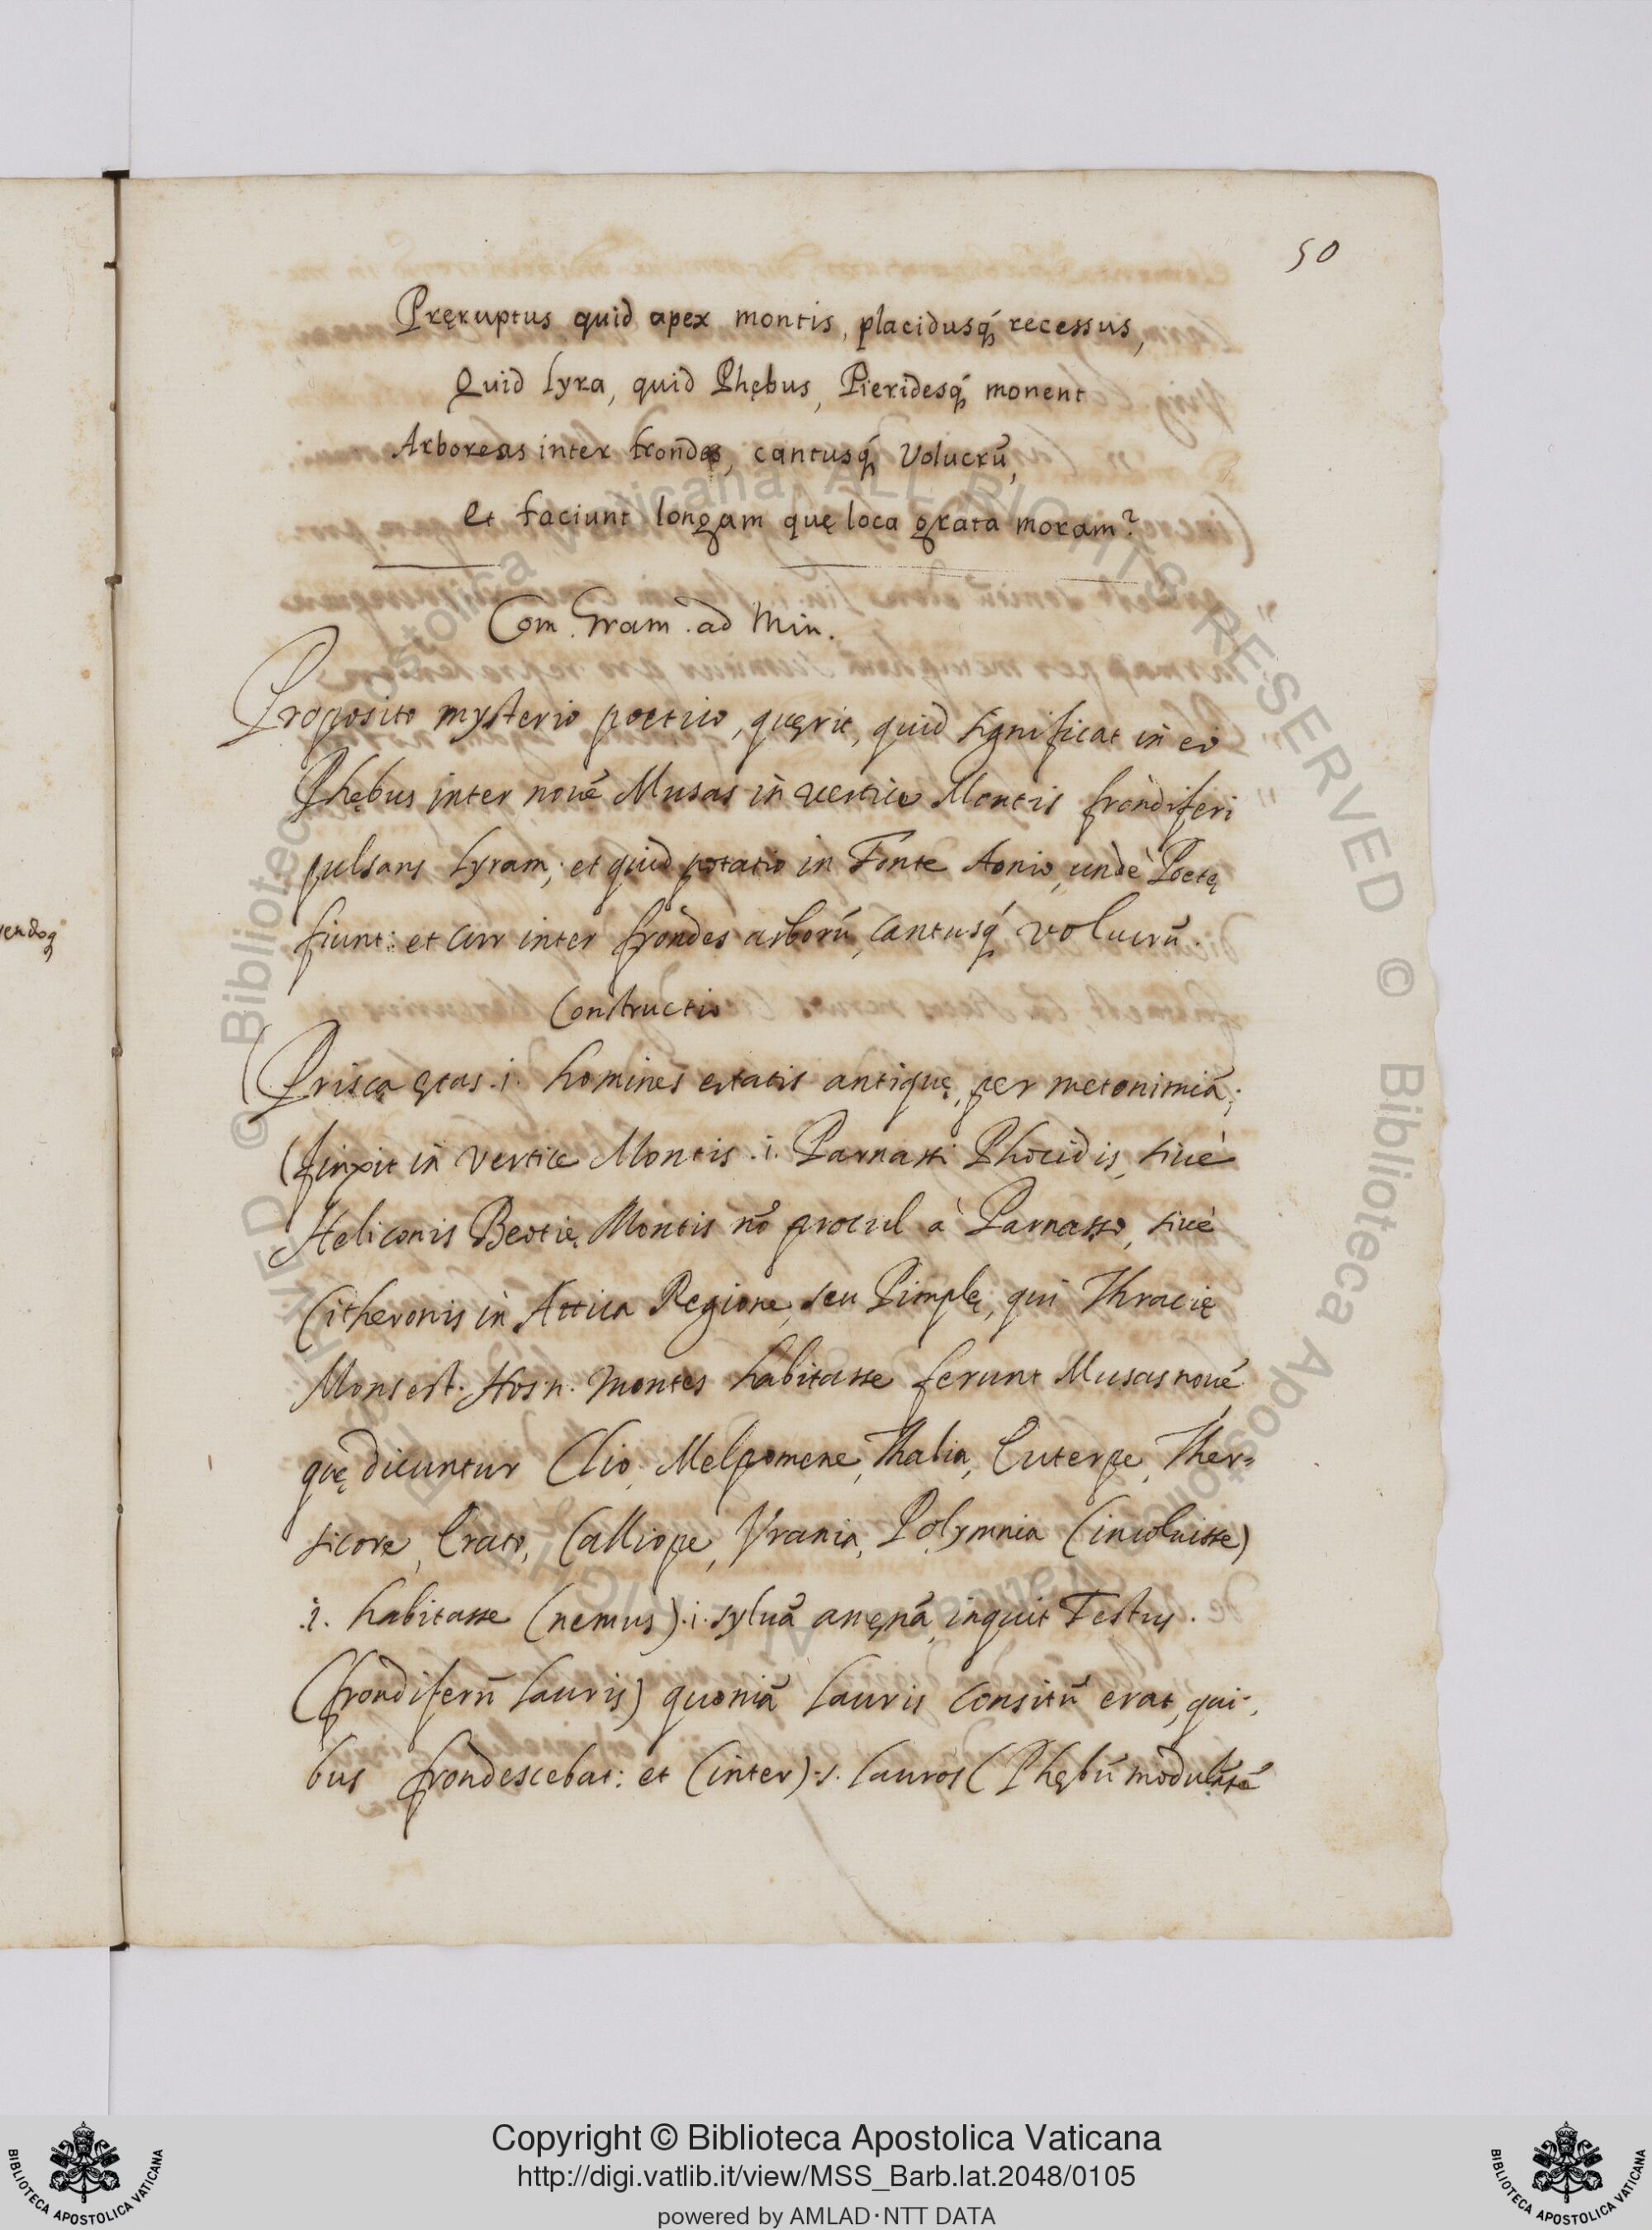 50
Pręruptus quid apex montis, placidusq́ recessus,
Quid lyra, quid Phębus, Pieridesq́ monent
Arboreas inter frondes, cantusq́ Volucrū,
Et faciunt longam quę loca grata moram?
Com. Gram. ad Min.
Proposito mysterio poetico, quęrit, quid significat in eo
Phębus inter nouē Musas in vertice Montis frondiferi
pulsans Lyram; et quid potatio in Fonte Aonio, undè Poetę
fiunt: et cur inter frondes arborū, cantusq́ volucrū.
Constructio
(Prisca ętas .i. homines ętatis antiquę, per metonimiā;
(finxit in vertice Montis .i. Parnassi Phocidis, siuè
Heliconis Beotię Montis nō procul à Parnasso, siuè
Citheronis in Attica Regione, seu Pimplę, qui Thracię
Mons est. Hos .n. montes habitasse ferunt Musas nouē,
quę dicuntur Clio, Melpomene, Thalia, Euterpe, Ther=
sicore, Erato, Calliope, Vrania, Polymnia (incoluisse)
.i. habitasse (nemus) .i. syluā amęnā, inquit Festus.
(frondiferū lauris) quoniā lauris consitū erat, qui-
bus frondescebat: et (inter) .s. lauros (Phębū modulātē
Copyright © Biblioteca Apostolica Vaticana
http://digi.vatlib.it/view/MSS_Barb.lat.2048/0105
powered by AMLAD·NTT DATA
BIBLIOTECA APOSTOLICA VATICANA
BIBLIOTECA APOSTOLICA VATICANA